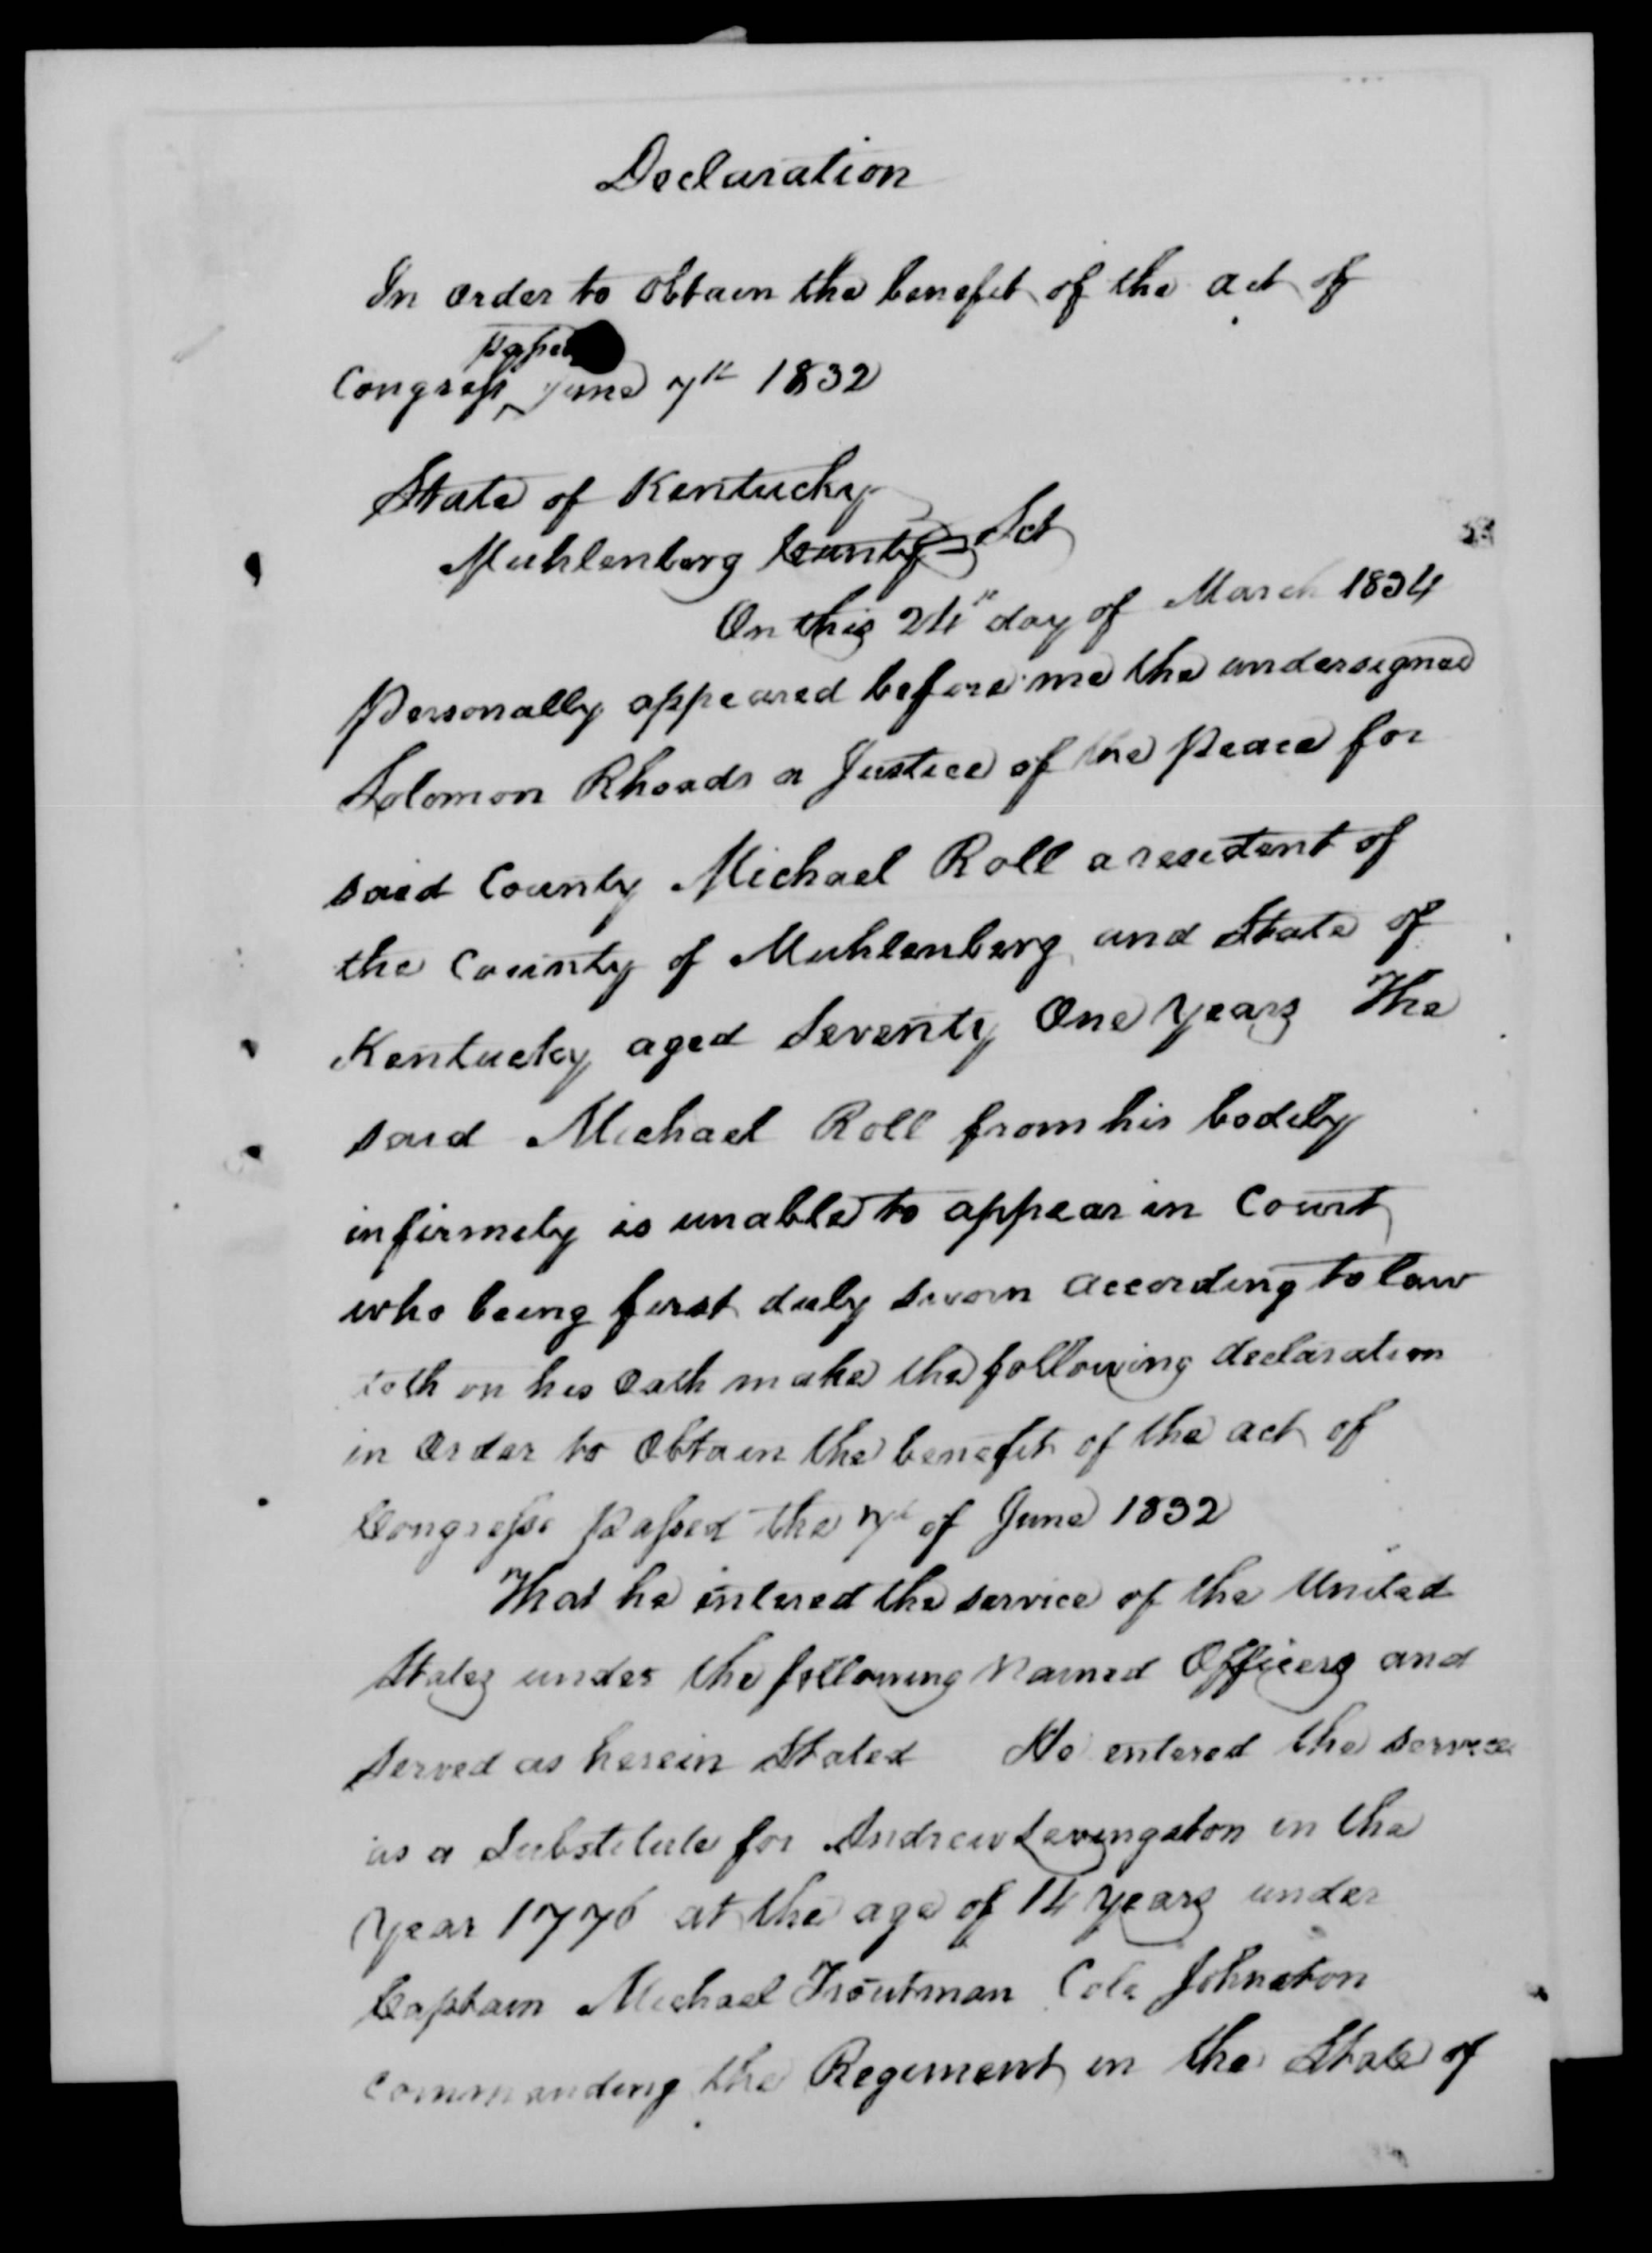 Declaration
In order to obtain the benefit of the act of
passed
Congress ^ June 7th 1832
State of Kentucky
Muhlenberg County Sct
On this 24th day of March 1834
personally appeared before me the undersigned
Solomon Rhoads a Justice of the peace for
said County Michael Roll a resident of
the County of Muhlenberg and State of
Kentucky aged Seventy One years The
said Michael Roll from his bodily
infirmity is unable to appear in Court
who being first duly sworn according to law
doth on his oath make the following declaration
in order to obtain the benefit of the act of
Congress passed the 7th of June 1832
That he entered the service of the United
States under the following named Officers and
served as herein Stated He entered the service
as a Substitute for Andrew Levingston in the
year 1776 at the age of 14 years under
Captain Michael Troutman Colo Johnston
commanding the Regiment in the State of